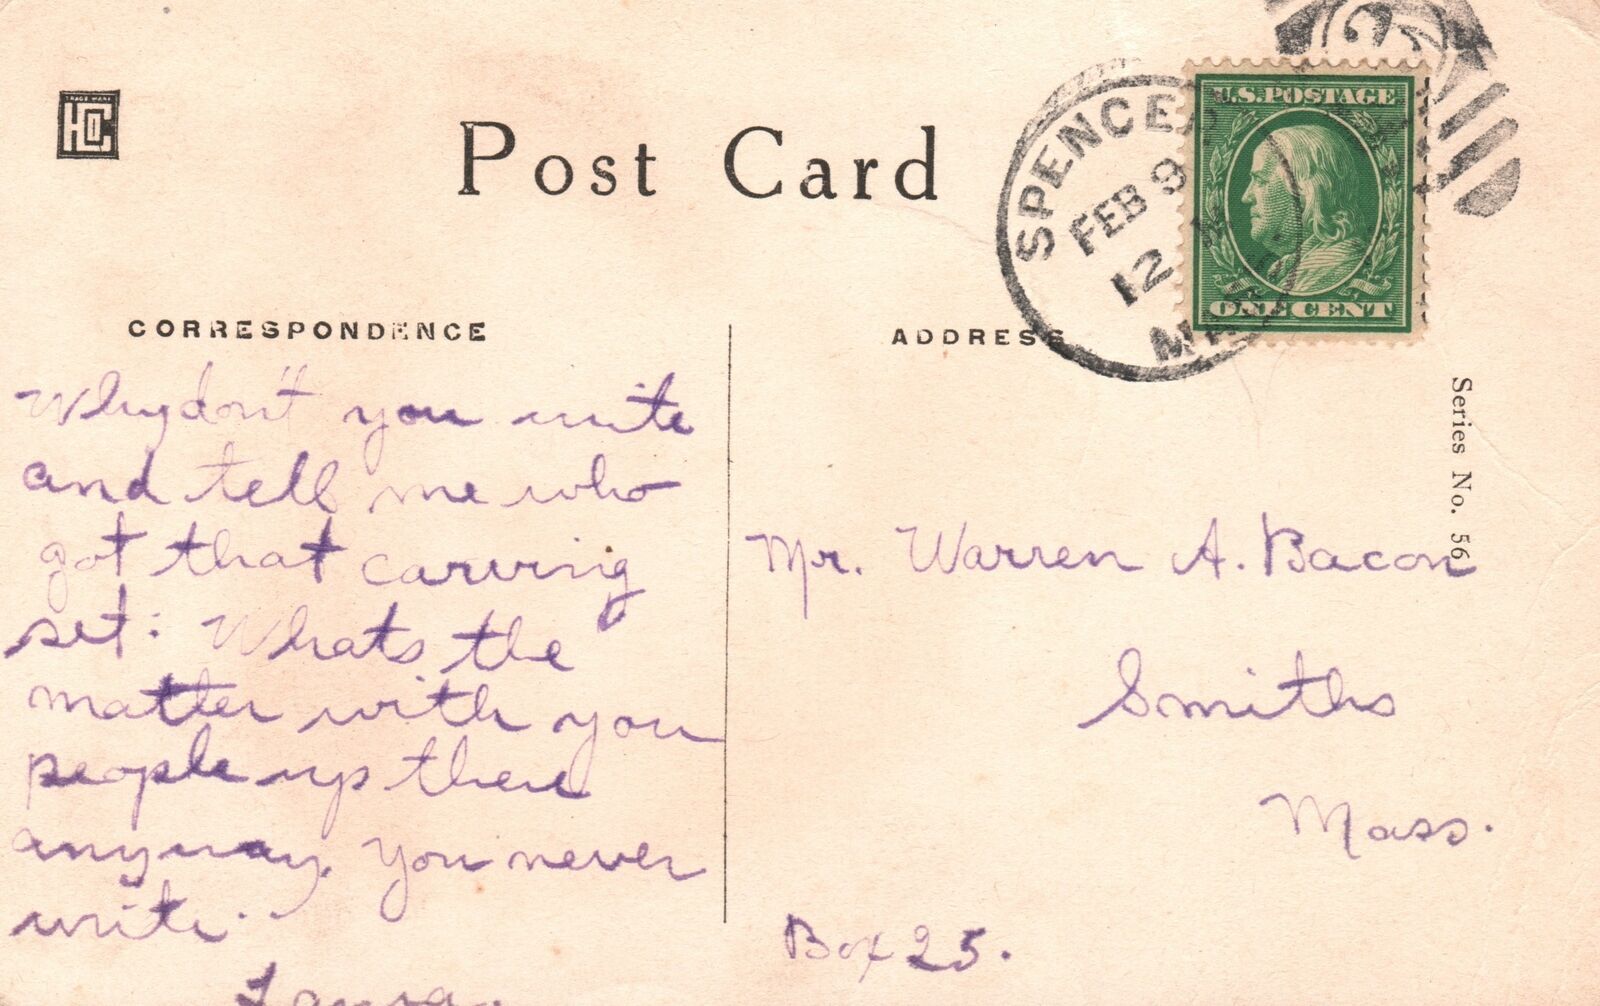 TRADE MARK
HCC
Post Card
SPENCER
FEB 9
12 M
MASS.
U.S. POSTAGE
ONE CENT
CORRESPONDENCE
ADDRESS
Why don't you write
and tell me who
got that carving
set. Whats the
matter with you
people up there
anyway. You never
write.
Mr. Warren A. Bacon
Smiths
Mass.
Box 25.
Series No. 56